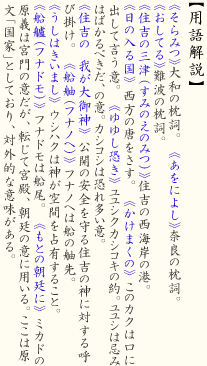 【用語解説】
《そらみつ》大和の枕詞。　《あをによし》奈良の枕詞。
《おしてる》難波の枕詞。
《住吉の三津(すみのえのみつ)》住吉の西海岸の港。
《日の入る国》西方の唐をさす。　《かけまくの》このカクは口に
出して言う意。　《ゆゆし恐き》ユユシクカシコキの約。ユユシは忌み
はばかるべきだ、の意。カシコシは恐れ多い意。
《住吉の　我が大御神》公開の安全を守る住吉の神に対する呼
び掛け。　《船舳(フナノヘ)》フナノヘは船の舳先。
《うしはきいまし》ウシハクは神が空間を占有すること。
《船艫(フナドモ)》フナドモは船尾。　《もとの朝廷に》ミカドの
原義は宮門の意だが、転じて宮殿、朝廷の意に用いる。ここは原
文「国家」としており、対外的な意味がある。